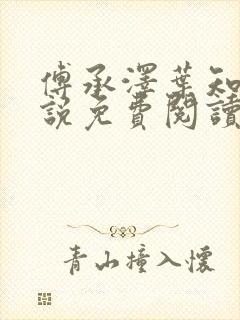 傅承澤葉知
說免費閱讀
青山撞入懷